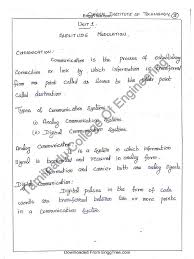 Downloaded From EnggTree.com
Unit 1
Amplitude Modulation
Introduction:
Communication is the process of establishing
Connection or link by which information is transferred
from one point called as source to the other point
called destination.
Types of Communication System
(i) Analog Communication System
(ii) Digital Communication System
Analog Communication:
is a System in which information
Signal is transmitted and received in analog form.
Information and carrier both are analog signals
Digital Communication:
Digital pulses in the form of code
words are transferred between two or more points
in a Communication System
Downloaded From EnggTree.com